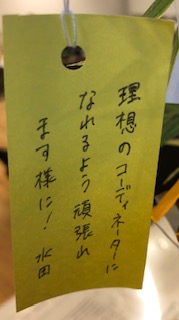 理想のコーディネーターに
なれるよう頑張れ
ます様に! 水田